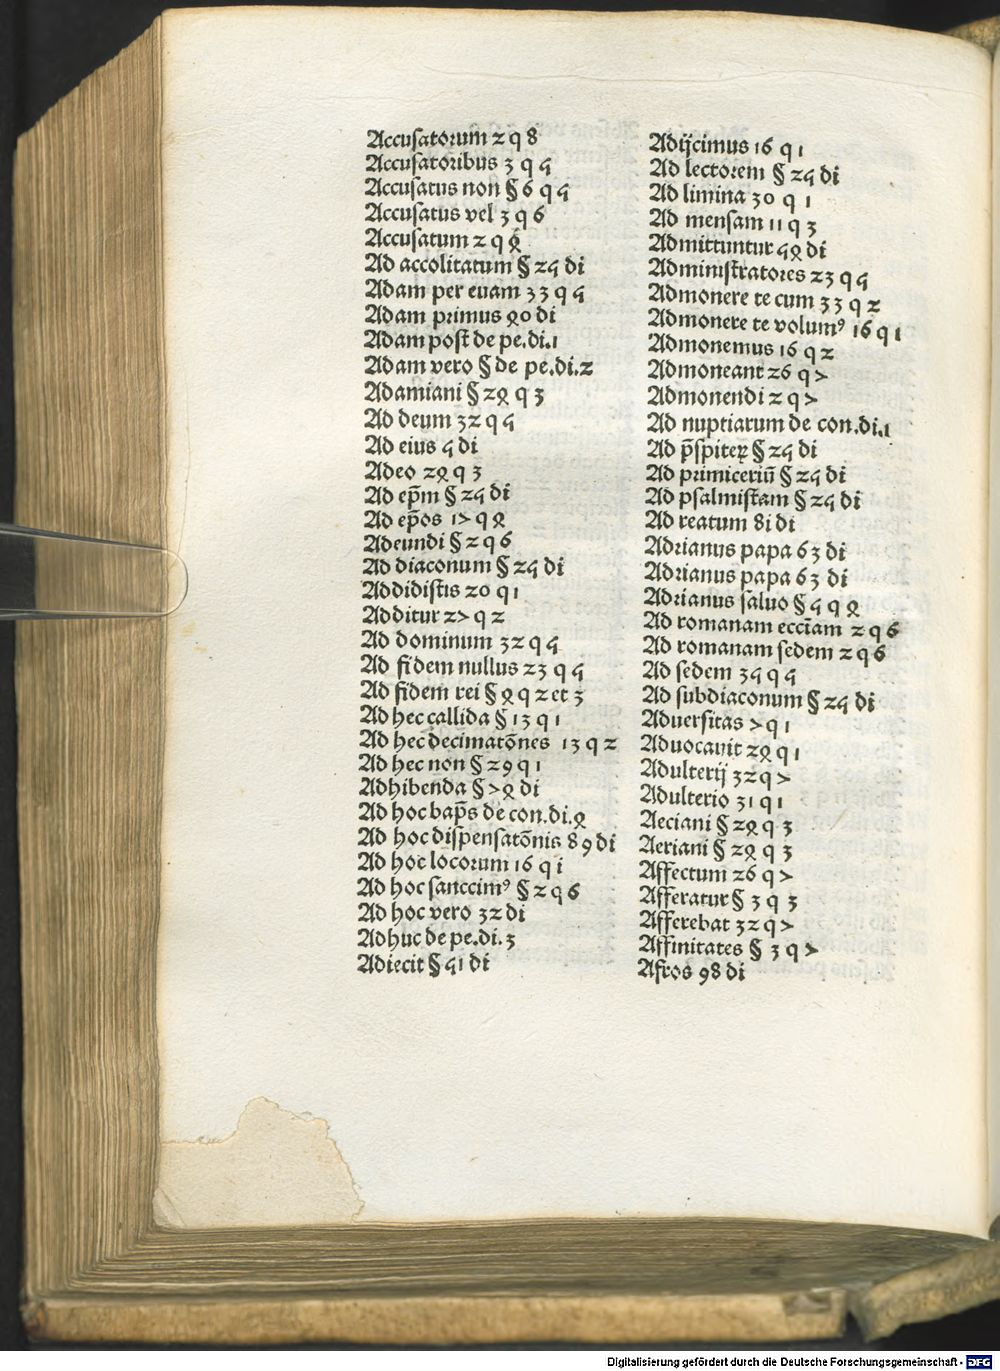 Accusatorum 2 q 8
Accusatoribus 3 q 5
Accusatus non § 6 q 5
Accusatus vel 3 q 6
Accusatum 2 q 4
Ad accolitatum § 25 di
Adam per euam 33 q 5
Adam primus 40 di
Adam post de pe.di.1
Adam vero § de pe.di.2
Adamiani § 24 q 3
Ad deum 32 q 5
Ad eius 5 di
Adeo 24 q 3
Ad ep̄m § 25 di
Ad ep̄os 17 q 4
Adeundi § 2 q 6
Ad diaconum § 25 di
Addidistis 20 q 1
Additur 27 q 2
Ad dominum 32 q 5
Ad fidem nullus 23 q 5
Ad fidem rei § 4 q 2 et 3
Ad hec callida § 13 q 1
Ad hec decimatōnes 13 q 2
Ad hec non § 29 q 1
Adhibenda § 74 di
Ad hoc bap̄s de con.di.4
Ad hoc dispensatōnis 89 di
Ad hoc locorum 16 q i
Ad hoc sanccimꝰ § 2 q 6
Ad hoc vero 32 di
Adhuc de pe.di.3
Adiecit § 51 di
Adijcimus 16 q 1
Ad lectorem § 25 di
Ad limina 30 q 1
Ad mensam 11 q 3
Admittuntur 54 di
Administratores 23 q 5
Admonere te cum 33 q 2
Admonere te volumꝰ 16 q 1
Admonemus 16 q 2
Admoneant 26 q 7
Admonendi 2 q 7
Ad nuptiarum de con.di.1
Ad p̄spiteꝝ § 25 di
Ad primiceriū § 25 di
Ad psalmistam § 25 di
Ad reatum 8i di
Adrianus papa 63 di
Adrianus papa 63 di
Adrianus saluo § 5 q 4
Ad romanam ecciam̄ 2 q 6
Ad romanam sedem 2 q 6
Ad sedem 35 q 5
Ad subdiaconum § 25 di
Aduersitas 7 q 1
Aduocauit 24 q 1
Adulterij 32 q 7
Adulterio 31 q 1
Aeciani § 24 q 3
Aeriani § 24 q 3
Affectum 26 q 7
Afferatur § 3 q 3
Afferebat 32 q 7
Affinitates § 3 q 7
Afros 98 di
Digitalisierung gefördert durch die Deutsche Forschungsgemeinschaft - DFG